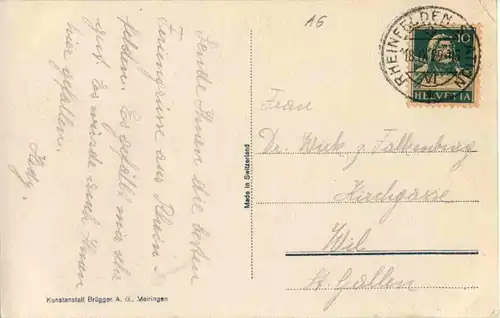 Sende Ihnen die besten
Feriengrüsse aus Rhein-
felden. Es gefällt mir sehr
gut. Es würde auch Ihnen
hier gefallen.
Hedy.
Kunstanstalt Brügger A. G., Meiringen
Made in Switzerland
16
RHEINFELDEN
10
HELVETIA
Frau
Dr. Wick z. Falkenburg
Kirchgasse
Wil
St. Gallen